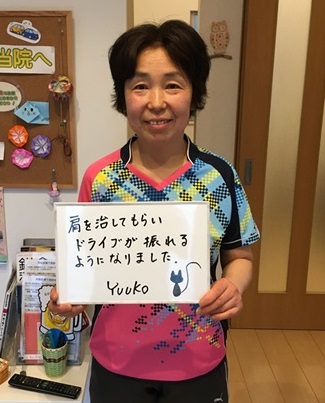 当院へ
肩を治してもらい
ドライブが振れる
ようになりました.
YUUKO